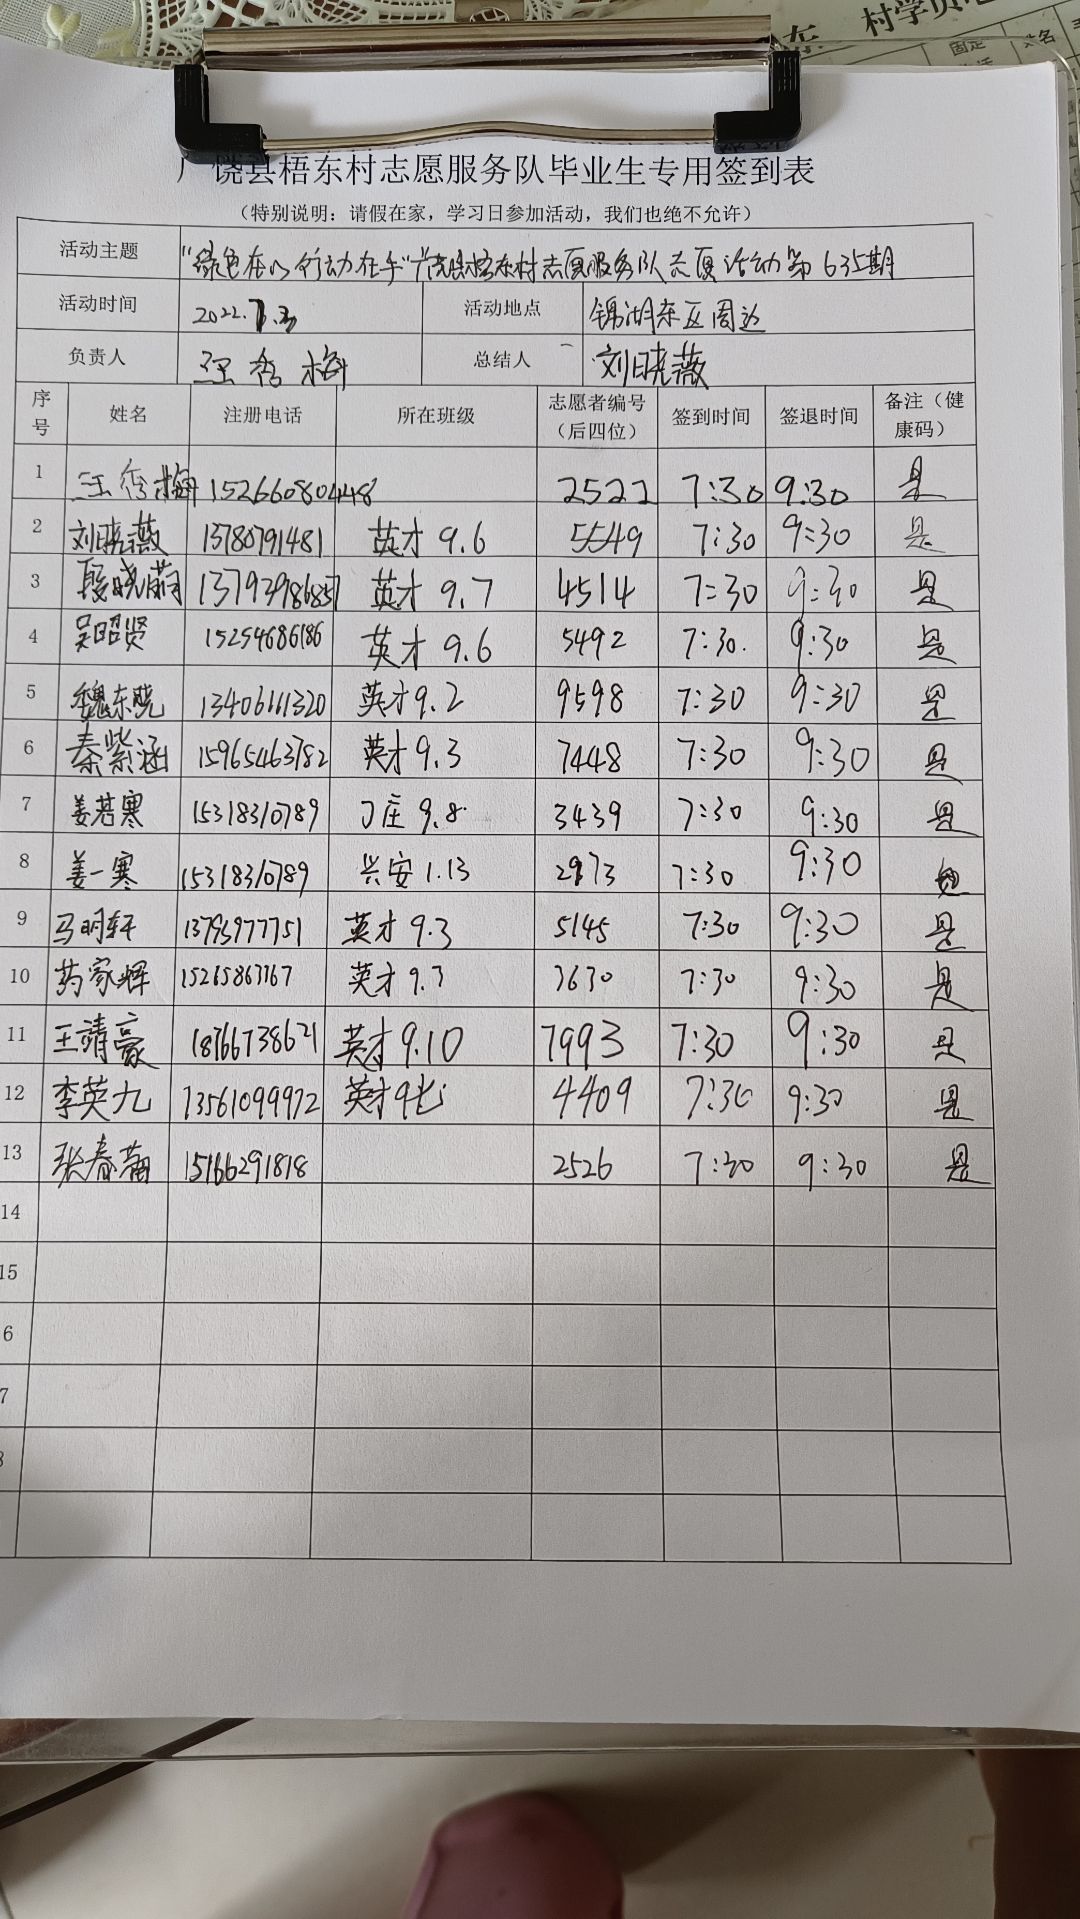 村学员
固定 姓名
广饶县梧东村志愿服务队毕业生专用签到表
（特别说明：请假在家，学习日参加活动，我们也绝不允许）
活动主题 "绿色在心 行动在手"广饶县梧东村志愿服务队志愿活动第635期
活动时间 2022.7.3 活动地点 锦湖东区周边
负责人 汪秀梅 总结人 刘晓薇
序号 姓名 注册电话 所在班级 志愿者编号（后四位） 签到时间 签退时间 备注（健康码）
1 汪秀梅 15266080448 2522 7:30 9:30 是
2 刘晓薇 13780791481 英才 9.6 5549 7:30 9:30 是
3 段晓雨 13793986857 英才 9.7 4514 7:30 9:30 是
4 吴昭贤 15254686186 英才 9.6 5492 7:30. 9:30 是
5 魏东晓 13406111320 英才9.2 9598 7:30 9:30 是
6 秦紫涵 15965463782 英才9.3 7448 7:30 9:30 是
7 姜若寒 15318310789 丁庄 9.8 3439 7:30 9:30 是
8 姜一寒 15318310789 兴安 1.13 2973 7:30 9:30
9 马明轩 13793977751 英才 9.3 5145 7:30 9:30 是
10 药家辉 15265863167 英才 9.3 3630 7:30 9:30 是
11 王靖豪 18766738621 英才9.10 7993 7:30 9:30 是
12 李英九 13561099972 英才9 4409 7:30 9:30 是
13 张春 15166291818 2526 7:30 9:30 是
14
15
6
7
8